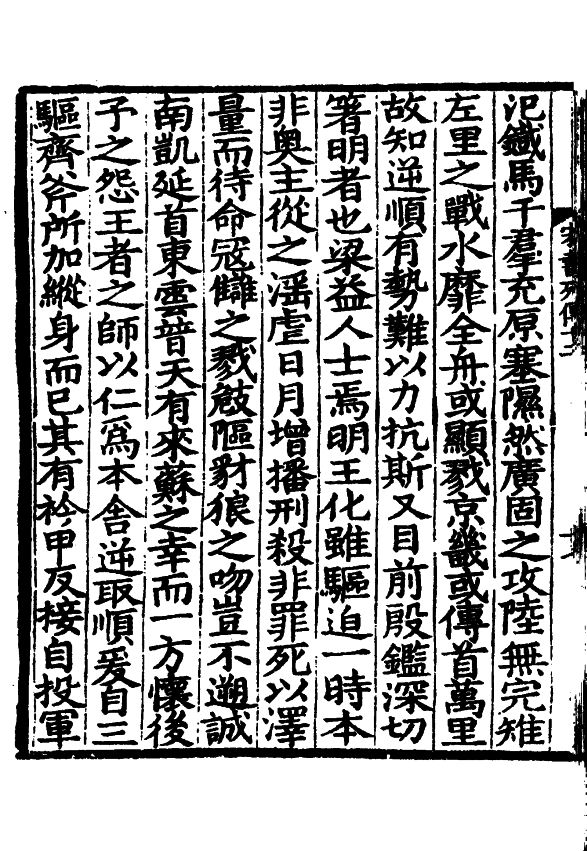 汜鐵馬千羣充原塞隰然廣固之攻陸無完雉
左里之戰水靡全舟或顯戮京畿或傳首萬里
故知逆順有勢難以力抗斯又目前殷鑑深切
著明者也梁益人士焉明王化雖驅迫一時本
非奧主從之淫虐日月增播刑殺非罪死以澤
量而待命寇讎之戮㪉嶇豺狼之吻豈不遡誠
南凱延首東雲普天有來蘇之幸而一方懷後
予之怨王者之師以仁爲本舍逆取順爰自三
驅齊斧所加縱身而已其有衿甲反接自投軍